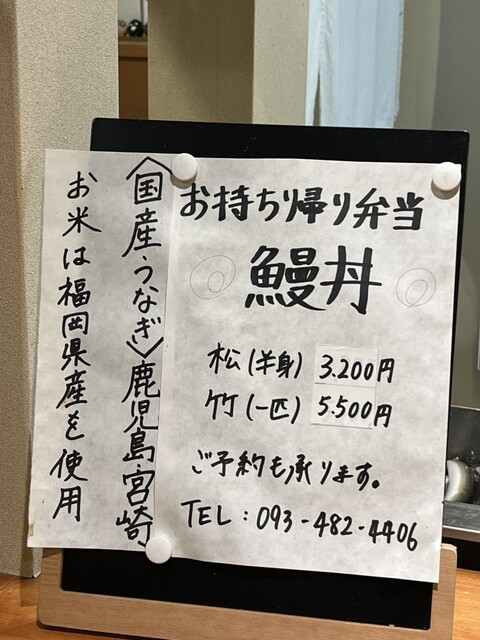 お持ち帰り弁当
鰻丼
松(半身) 3.200円
竹(一匹) 5.500円
ご予約も承ります。
TEL:093-482-4406
〈国産うなぎ〉鹿児島宮崎
お米は福岡県産を使用